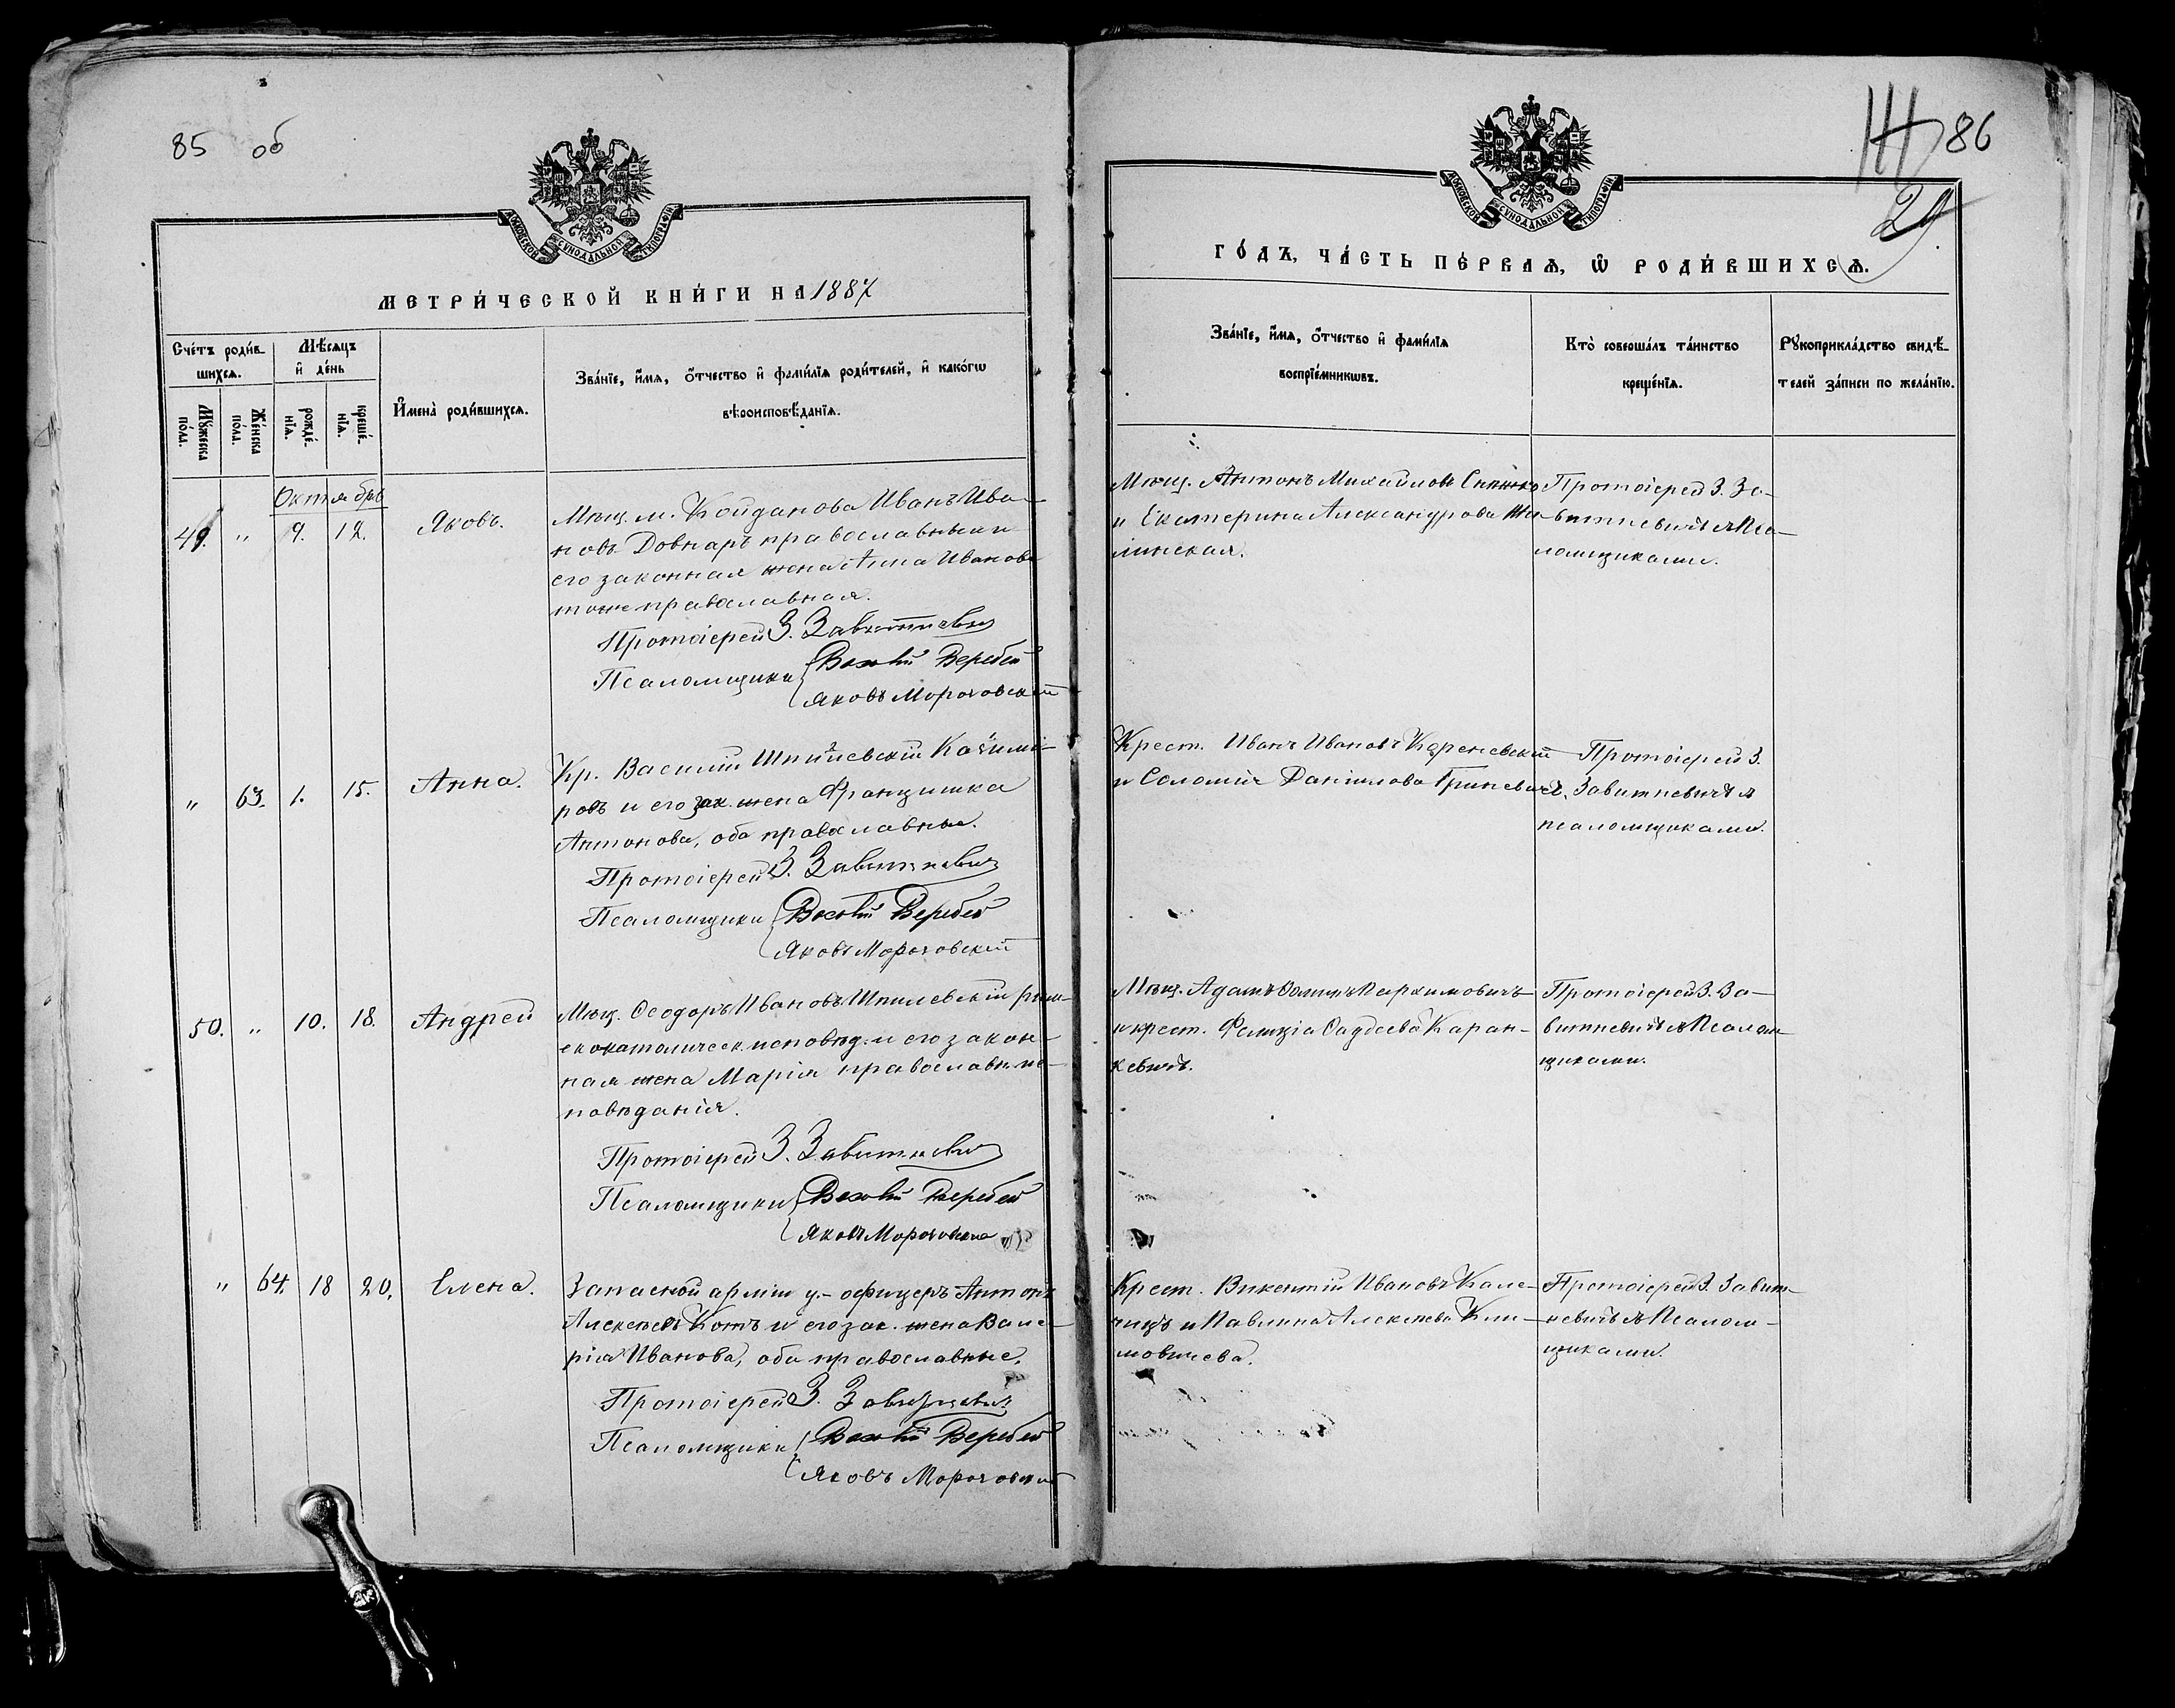 85 об
МОСКОВСКОЙ СУНОДАЛЬНОЙ ТИПОГРАФІИ
МЕТРИ́ЧЕСКОЙ КНИ́ГИ НА 1887
Сче́тъ роди́в-
шихсѧ.
Мѣ́сѧцъ
и҆ де́нь
Мꙋ́жеска
по́ла.
Же́нска
по́ла.
рожде́-
нїѧ.
креще́-
нїѧ.
И҆мена̀ роди́вшихсѧ.
Зва́нїе, и҆́мѧ, ѻ҆́тчество и҆ фами́лїѧ роди́телей, и҆ како́гѡ
вѣроисповѣ́данїѧ.
Октябрь
49. " 9. 12. Яковъ.
Мѣщ. м. Койданова Иванъ Ива-
новъ Довнаръ православный и
его законная жена Анна Иванова
тоже православная.
Протоіерей З. Завитневич
Псаломщики Василій Веребей
Яковъ Морочовскій
" 63. 1. 15. Анна.
Кр. Василій Шпилевскій Казимі-
ровъ и его зак. жена Францишка
Антонова, оба православные.
Протоіерей З. Завитневич
Псаломщики Василій Веребей
Яковъ Морочовскій
50. " 10. 18. Андрей
Мѣщ. Ѳеодоръ Ивановъ Шпилевскій рим-
скокатолическ. исповѣд. и его закон-
ная жена Марія православн. ис-
повѣданія.
Протоіерей З. Завитневич
Псаломщики Василій Веребей
Яковъ Морочовскій
" 64. 18 20. Елена.
Запасной арміи у.-офицеръ Антонъ
Алексѣевъ Котъ и его зак. жена Вале-
рія Иванова, оба православные.
Протоіерей З. Завитневич
Псаломщики Василій Веребей
Яковъ Морочовскій
86
29
МОСКОВСКОЙ СУНОДАЛЬНОЙ ТИПОГРАФІИ
ГО́ДЪ, ЧА́СТЬ ПЕ́РВАѦ, Ѡ҆ РОДИ́ВШИХСѦ.
Зва́нїе, и҆́мѧ, ѻ҆́тчество и҆ фами́лїѧ
воспрїе́мникѡвъ.
Кто̀ соверша́лъ та́инство
креще́нїѧ.
Рꙋкоприкла́дство свидѣ́-
телей за́писи по жела́нїю.
Мѣщ. Антонъ Михайловъ
и Екатерина Александрова
линская.
Протоіерей З. За-
витневичъ съ Пса-
ломщиками.
Крест. Иванъ Ивановъ Кореневскій
и Соломія Даніилова Гриневичъ.
Протоіерей З.
Завитневичъ съ
псаломщиками.
Мѣщ. Адамъ Пархимовичъ
и крест. Фелиція Ѳадѣева Каран-
кевичъ.
Протоіерей З. За-
витневичъ съ Псалом-
щиками.
Крест. Викентій Ивановъ Кале-
чицъ и Павлина Алексѣева Кли-
мовичева.
Протоіерей З. Завит-
невичъ съ Псалом-
щиками.